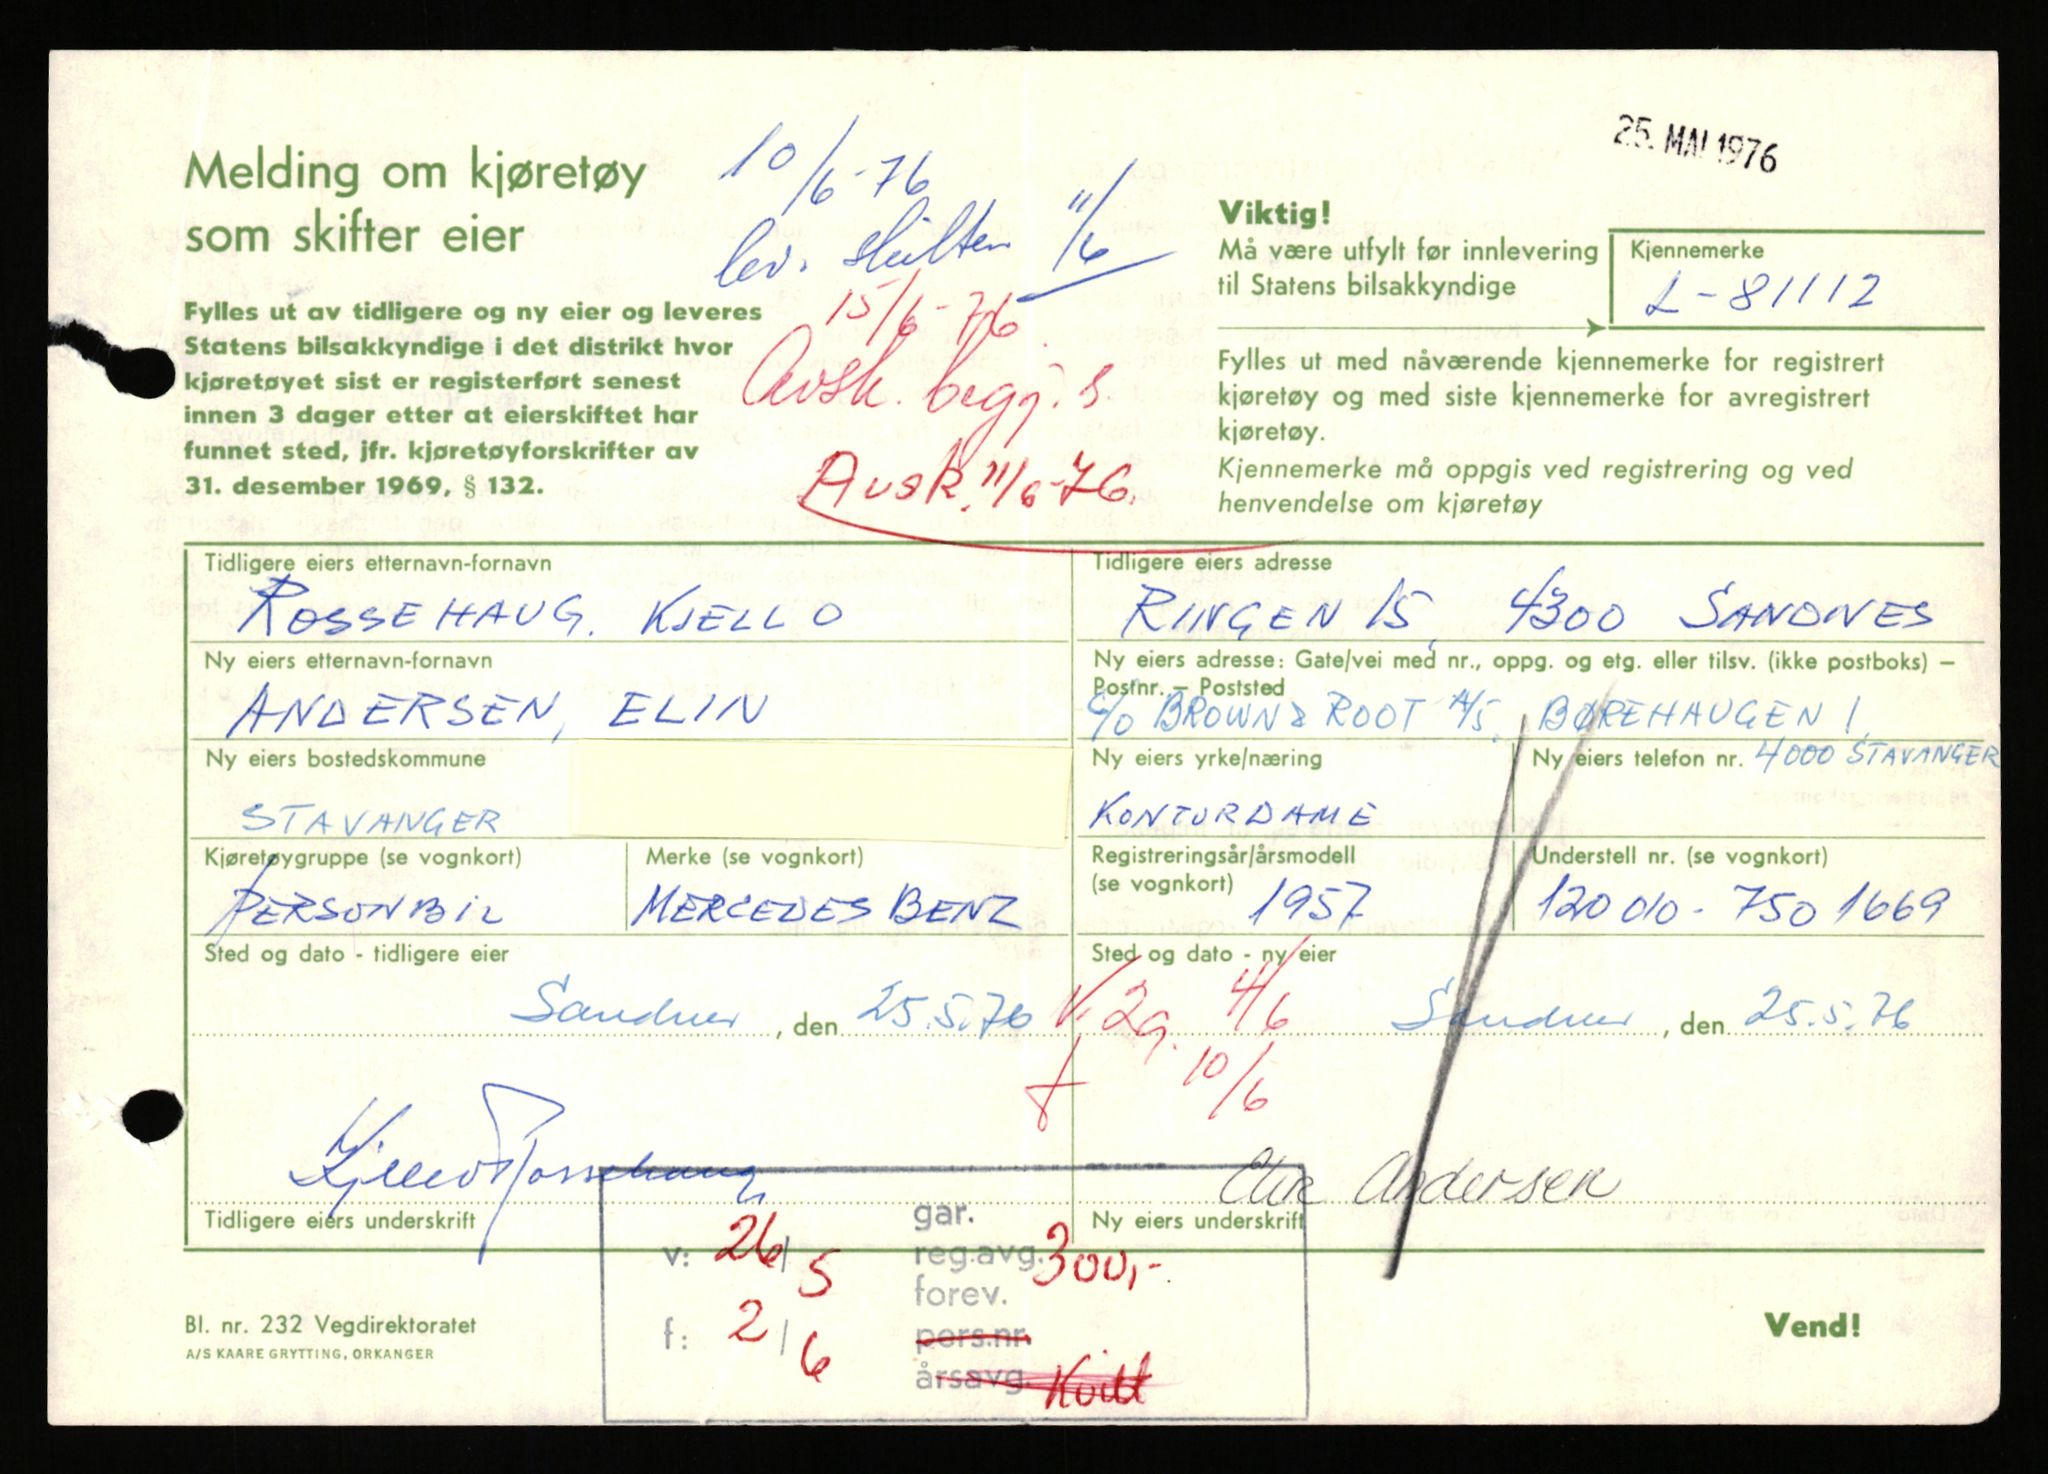 25. MAI 1976
Melding om kjøretøy
som skifter eier
10/6-76
lev. skilten 11/6
15/6-76
Avsk. begj. s
Avsk. 11/6-76.
Fylles ut av tidligere og ny eier og leveres
Statens bilsakkyndige i det distrikt hvor
kjøretøyet sist er registerført senest
innen 3 dager etter at eierskiftet har
funnet sted, jfr. kjøretøyforskrifter av
31. desember 1969, § 132.
Viktig!
Må være utfylt før innlevering
til Statens bilsakkyndige
Kjennemerke
L-81112
Fylles ut med nåværende kjennemerke for registrert
kjøretøy og med siste kjennemerke for avregistrert
kjøretøy.
Kjennemerke må oppgis ved registrering og ved
henvendelse om kjøretøy
Tidligere eiers etternavn-fornavn
ROSSEHAUG. KJELL O
Tidligere eiers adresse
RINGEN 15, 4300 SANDNES
Ny eiers etternavn-fornavn
ANDERSEN, ELIN
Ny eiers adresse: Gate/vei med nr., oppg. og etg. eller tilsv. (ikke postboks) –
Postnr. – Poststed
C/O BROWN & ROOT A/S. BØREHAUGEN 1,
4000 STAVANGER
Ny eiers bostedskommune
STAVANGER
Ny eiers yrke/næring
KONTORDAME
Ny eiers telefon nr.
Kjøretøygruppe (se vognkort)
PERSONBIL
Merke (se vognkort)
MERCEDES BENZ
Registreringsår/årsmodell
(se vognkort) 1957
Understell nr. (se vognkort)
120010-7501669
Sted og dato - tidligere eier
Sandnes, den 25.5.76
Sted og dato - ny eier
Sandnes, den 25.5.76
V. 2g. 4/6
10/6
Kjell O Rossehaug
Tidligere eiers underskrift
Elin Andersen
Ny eiers underskrift
v: 26/5
f: 2/6
gar.
reg.avg. 300,-
forev.
pers.nr.
årsavg. Kvitt
Bl. nr. 232 Vegdirektoratet
A/S KAARE GRYTTING, ORKANGER
Vend!